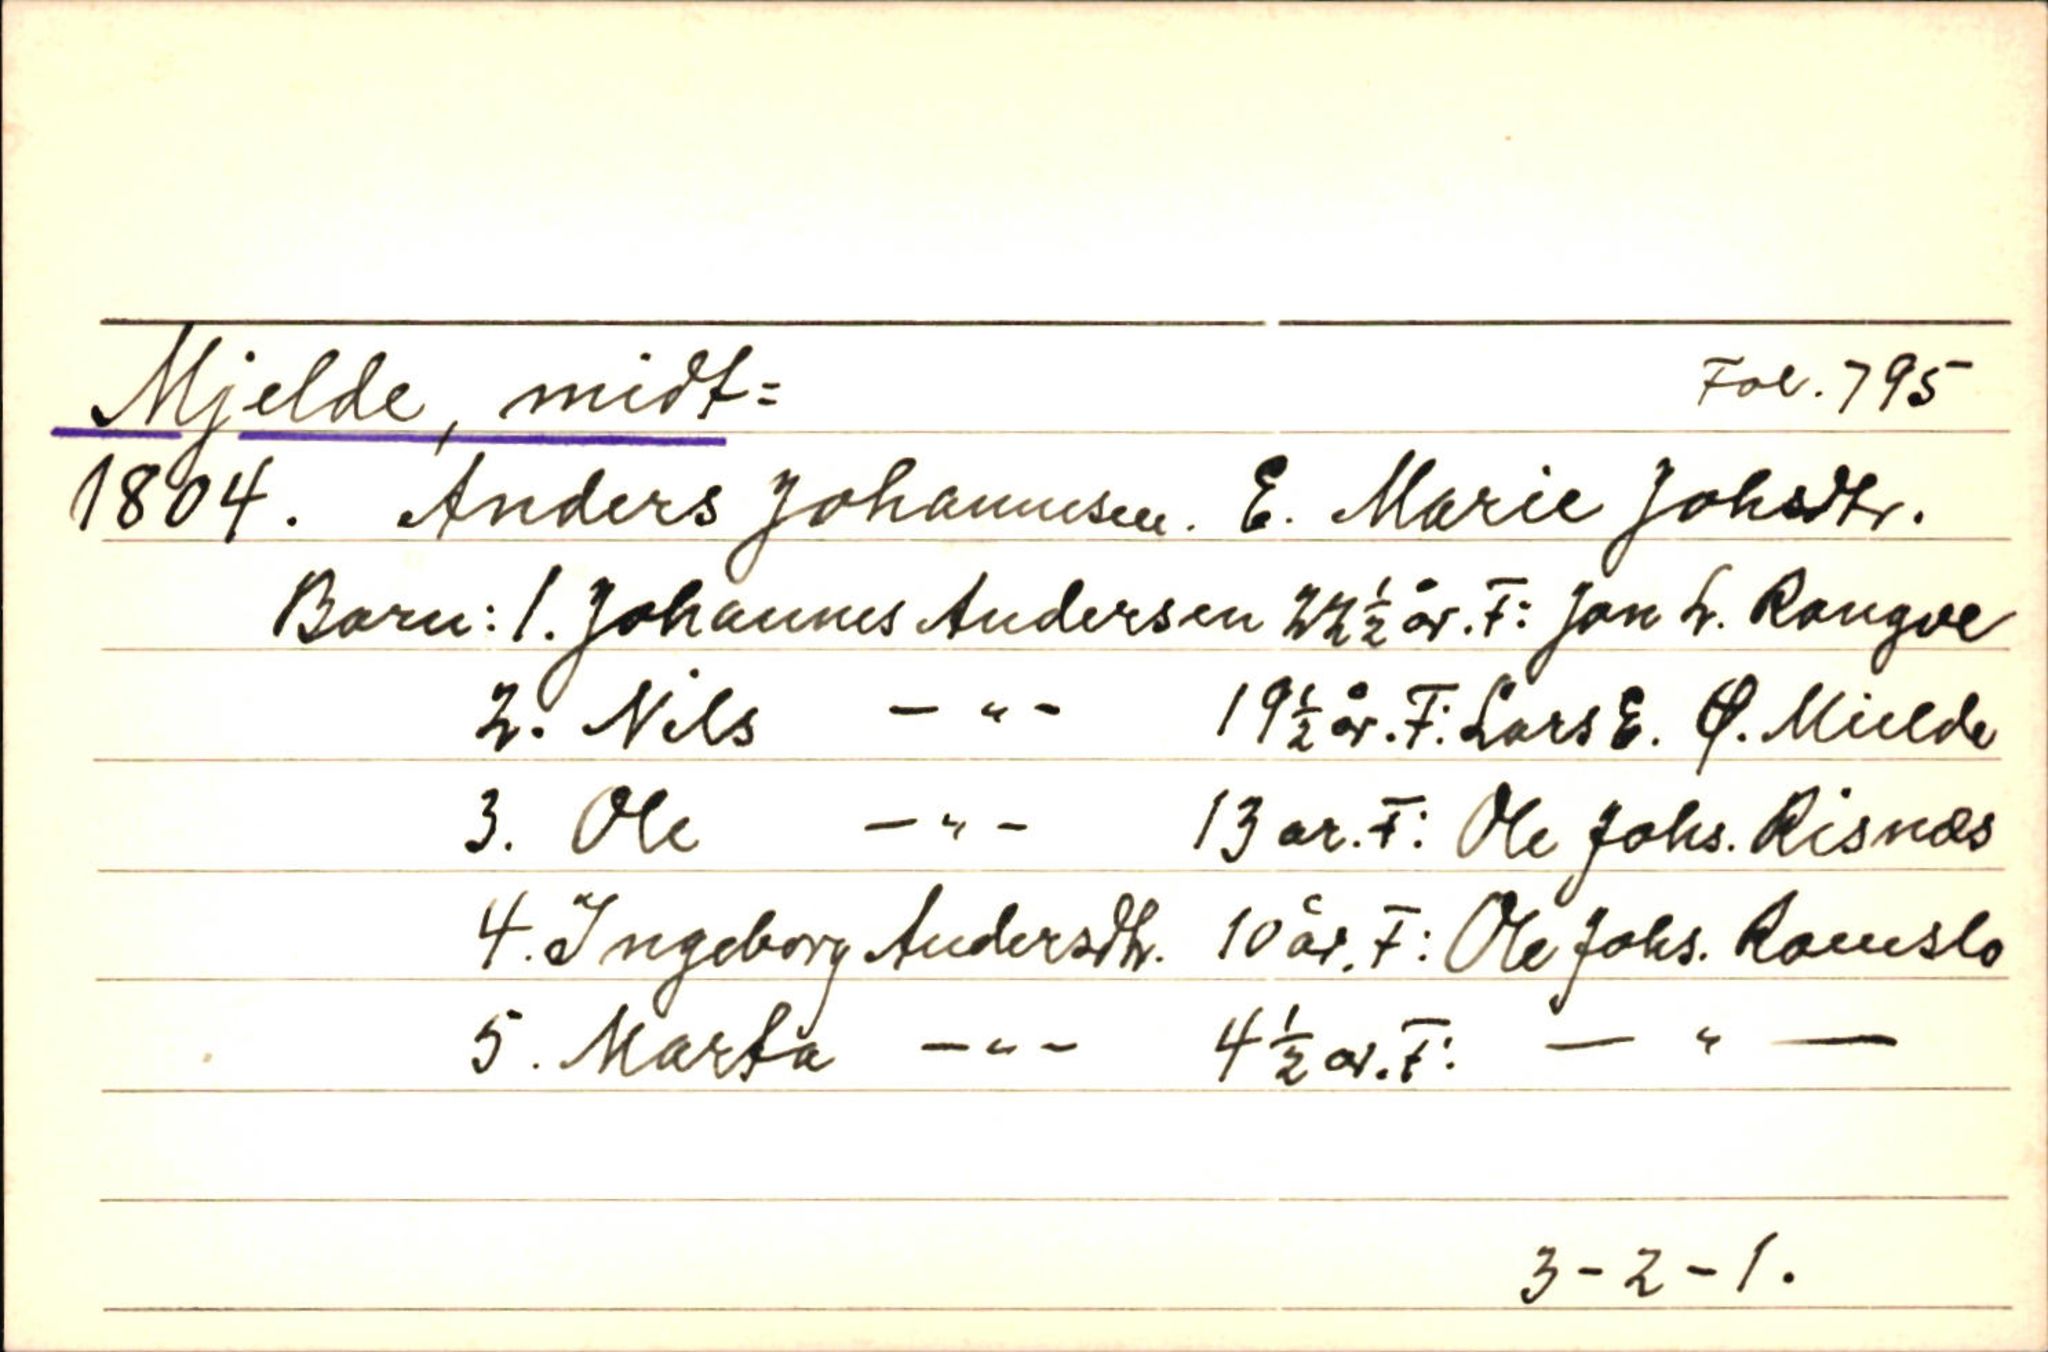 Mjelde, midt= Fol. 795
1804. Anders Johannesen. E. Marie Johsdtr.
Barn: 1. Johannes Andersen 22½ år. F: Jon L. Rongve
2. Nils — " — 19½ år. F: Lars E. Ø. Mielde
3. Ole — " — 13 ar. F: Ole Johs. Risnæs
4. Ingeborg Andersdtr. 10 år. F: Ole Johs. Romslo
5. Marta — " — 4½ ar. F: — " —
3-2-1.